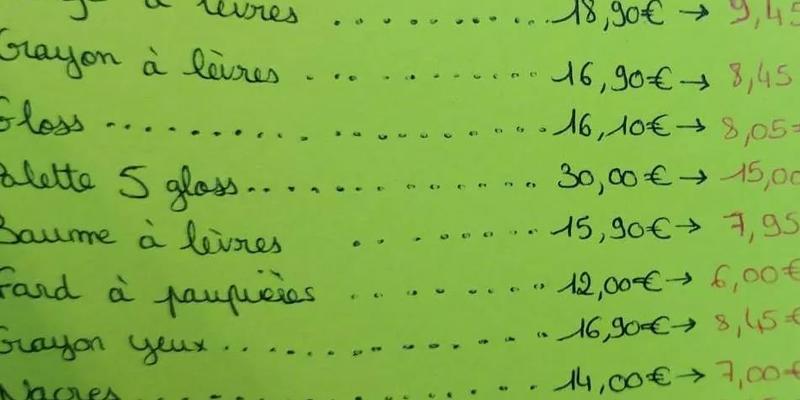 à lèvres ........ 18,90€ → 9,45
Crayon à lèvres ........ 16,90€ → 8,45
Gloss ........ 16,10€ → 8,05€
Palette 5 gloss ........ 30,00€ → 15,00
Baume à lèvres ........ 15,90€ → 7,95
Fard à paupières ........ 12,00€ → 6,00€
Crayon yeux ........ 16,90€ → 8,45€
Nacres ........ 14,00€ → 7,00€